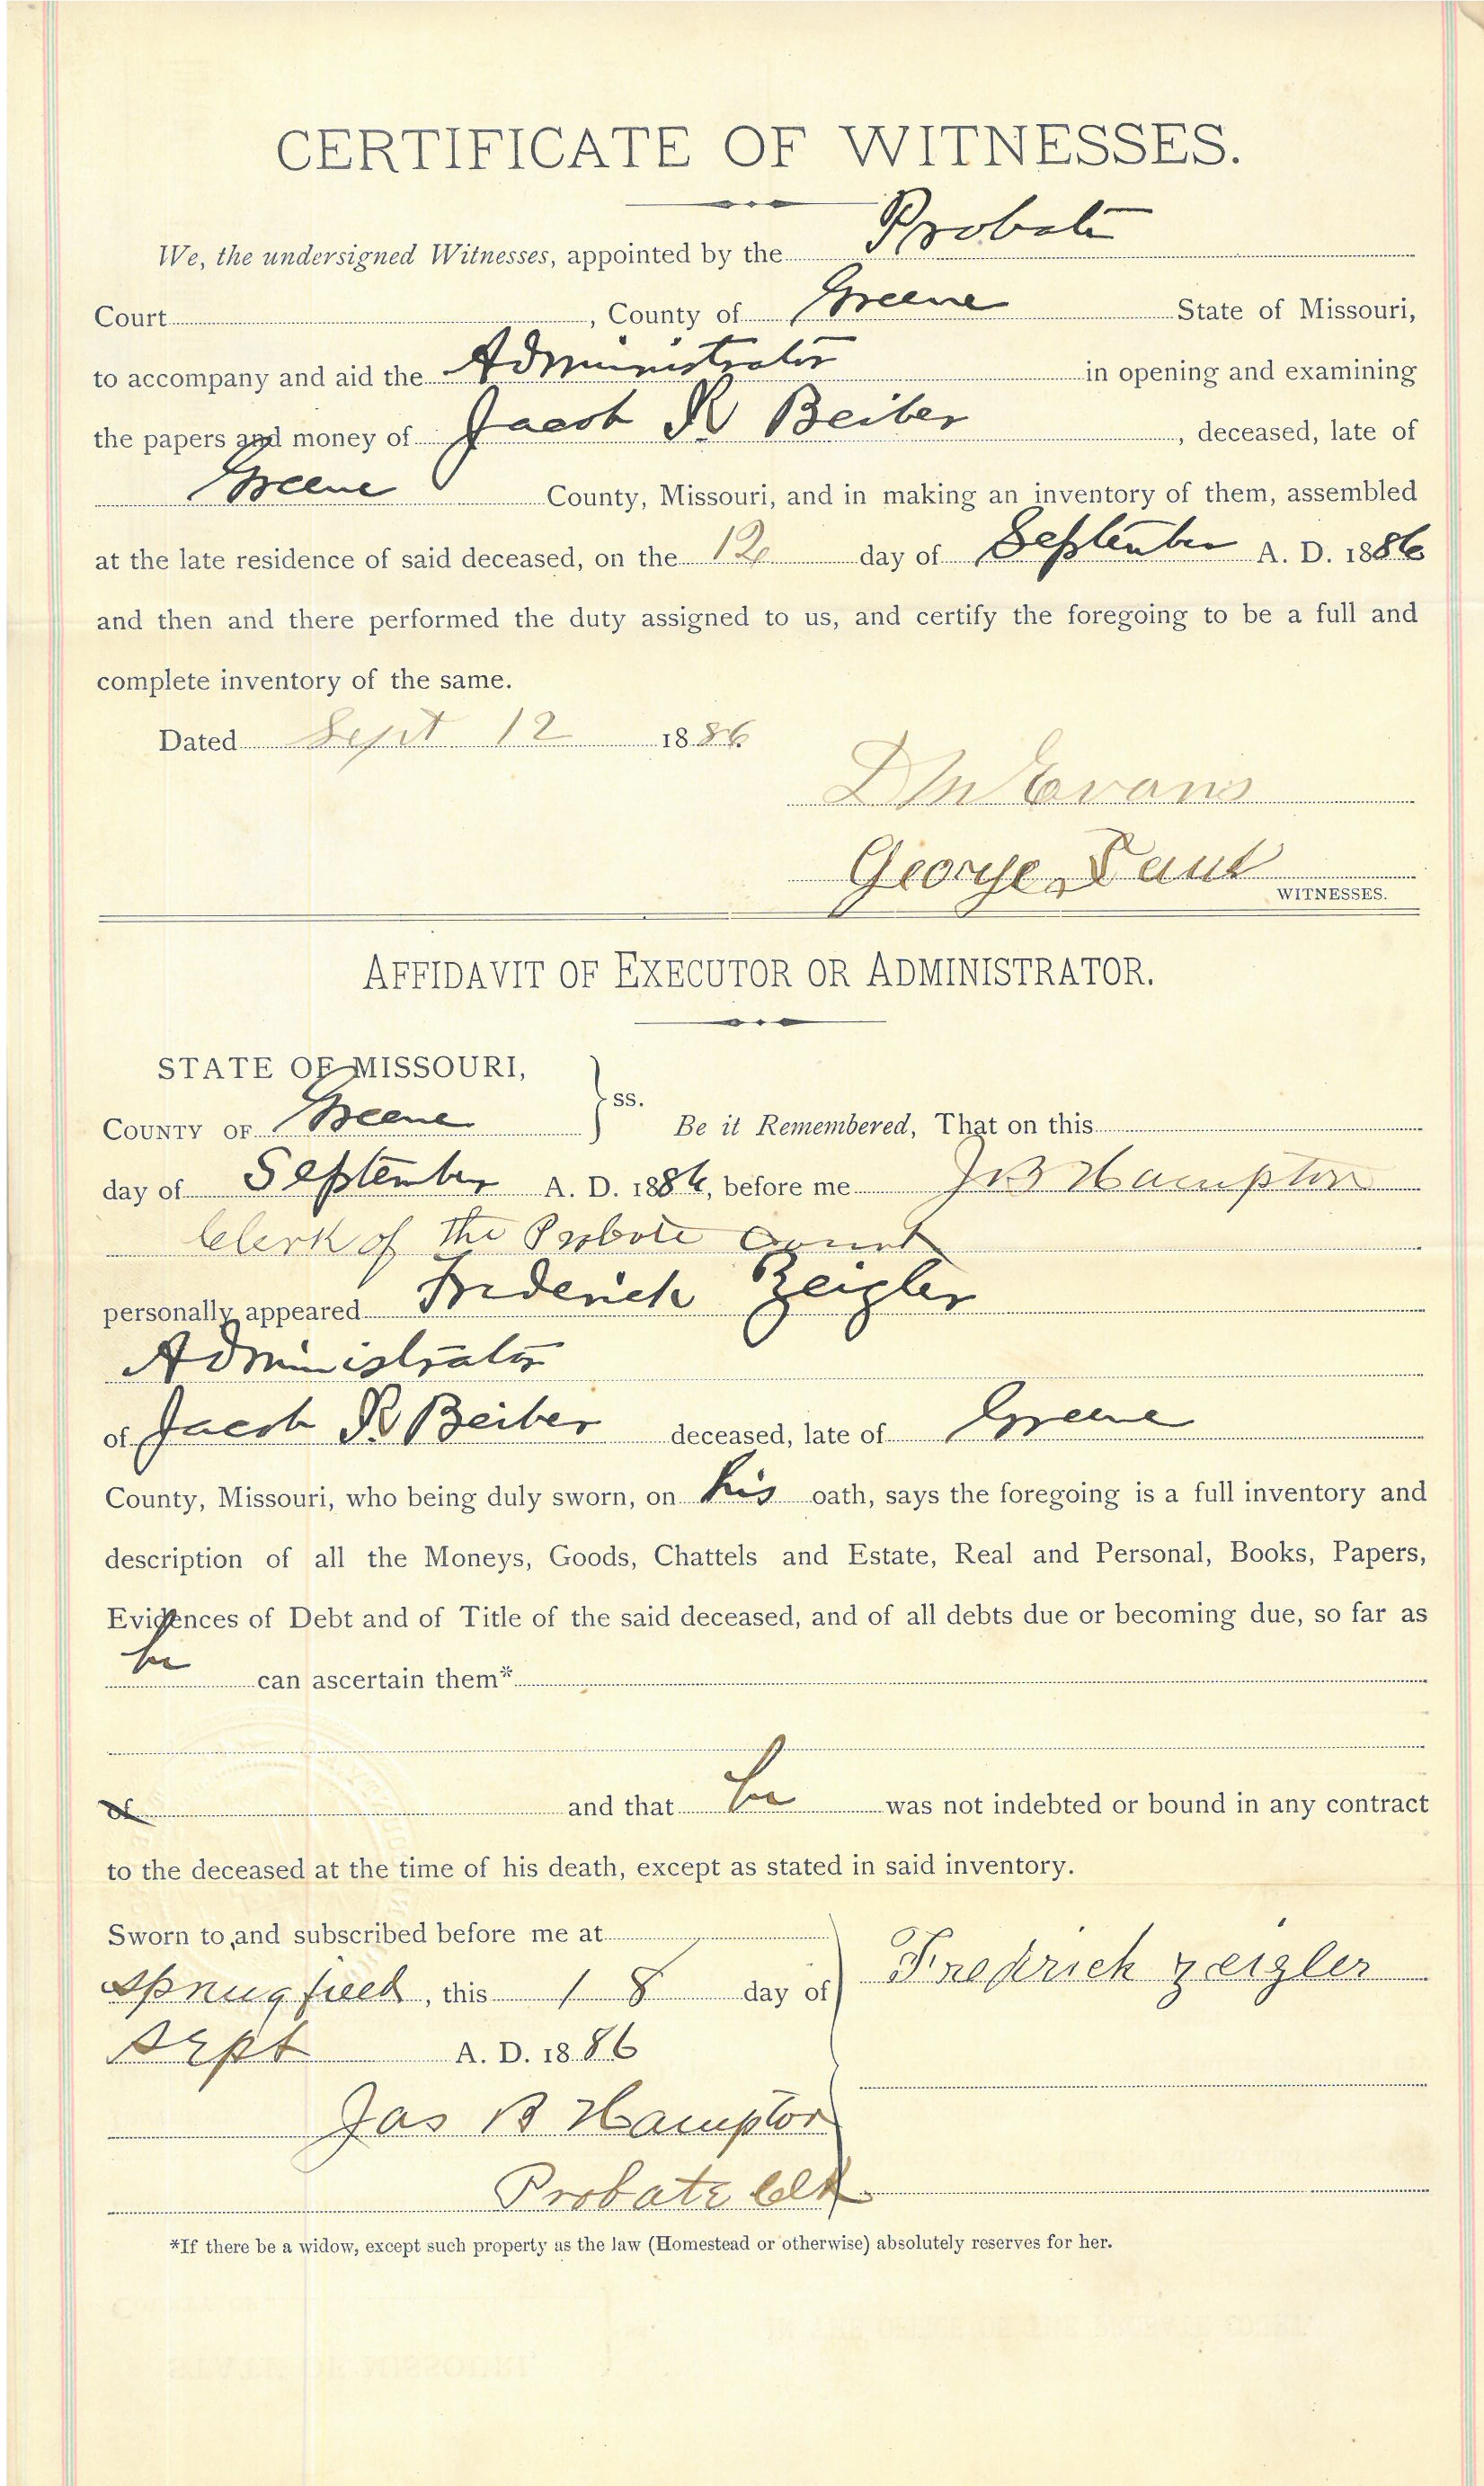 CERTIFICATE OF WITNESSES.
We, the undersigned Witnesses, appointed by the Probate
Court, County of Greene State of Missouri,
to accompany and aid the Administrator in opening and examining
the papers and money of Jacob R Beiber, deceased, late of
Greene County, Missouri, and in making an inventory of them, assembled
at the late residence of said deceased, on the 12 day of September A. D. 1886
and then and there performed the duty assigned to us, and certify the foregoing to be a full and
complete inventory of the same.
Dated Sept 12 1886
D M Evans
George
WITNESSES.
AFFIDAVIT OF EXECUTOR OR ADMINISTRATOR.
STATE OF MISSOURI,
COUNTY OF Greene } ss. Be it Remembered, That on this
day of September A. D. 1886, before me J B Hampton
Clerk of the Probate Court
personally appeared Frederick Zeigler
Administrator
of Jacob R Beiber deceased, late of Greene
County, Missouri, who being duly sworn, on his oath, says the foregoing is a full inventory and
description of all the Moneys, Goods, Chattels and Estate, Real and Personal, Books, Papers,
Evidences of Debt and of Title of the said deceased, and of all debts due or becoming due, so far as
he can ascertain them*
of and that he was not indebted or bound in any contract
to the deceased at the time of his death, except as stated in said inventory.
Sworn to and subscribed before me at
Springfield, this 18 day of
Fredrich Zeigler
Sept A. D. 1886
Jas B Hampton
Probate Clk
*If there be a widow, except such property as the law (Homestead or otherwise) absolutely reserves for her.